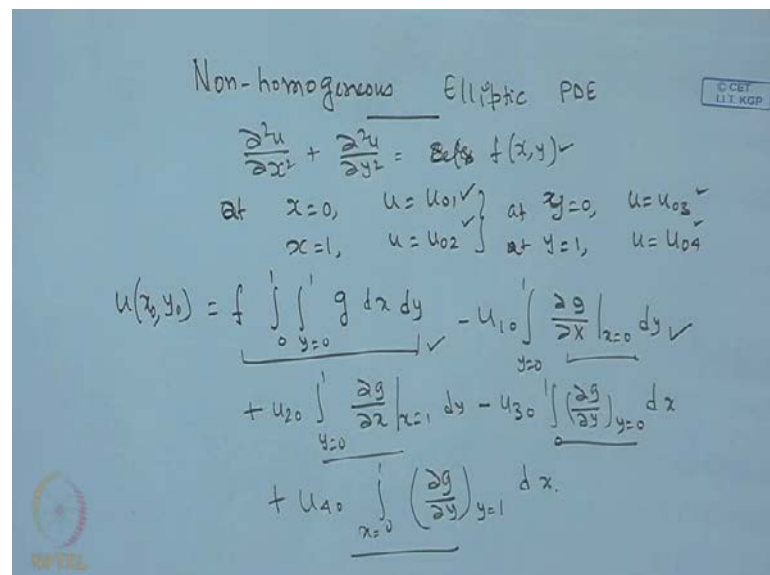 Non-homogeneous Elliptic PDE
© CET
I.I.T. KGP
∂²u/∂x² + ∂²u/∂y² = f(x,y) ✓
at x=0, u = u01 ✓ } at y=0, u = u03 ✓
x=1, u = u02 ✓ } at y=1, u = u04 ✓
u(x0, y0) = f ∫0^1 ∫y=0^1 g dx dy ✓ - u10 ∫y=0^1 ∂g/∂x |x=0 dy ✓
+ u20 ∫y=0^1 ∂g/∂x |x=1 dy - u30 ∫0^1 (∂g/∂y)y=0 dx
+ u40 ∫x=0^1 (∂g/∂y)y=1 dx.
NPTEL